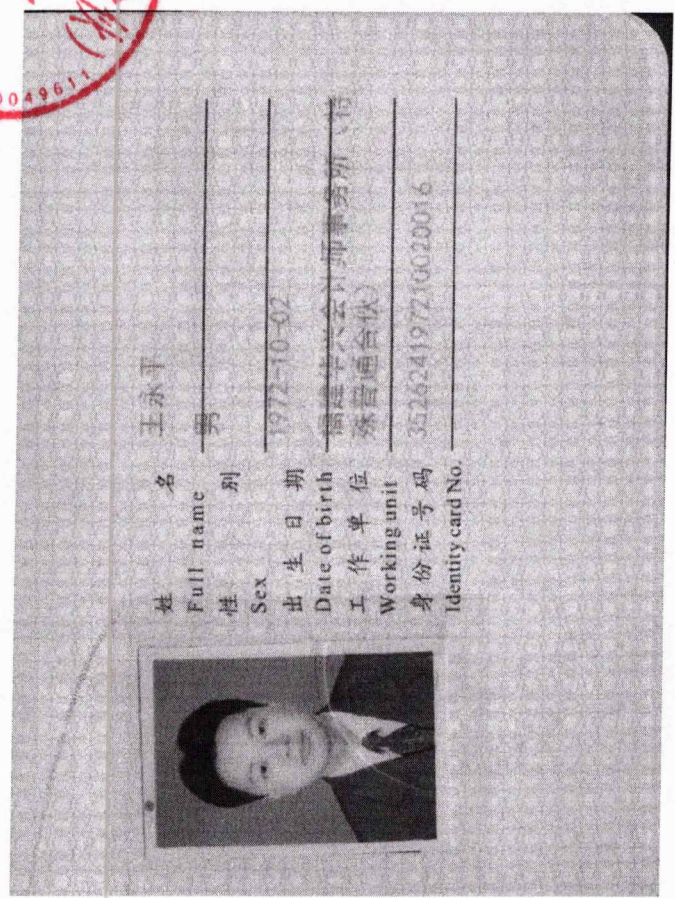 姓 名 王永平
Full name
性 别 男
Sex
出生日期 1972-10-02
Date of birth
工作单位 福建华兴会计师事务所（特
Working unit 殊普通合伙）
身份证号码 352624197210020016
Identity card No.
0049611